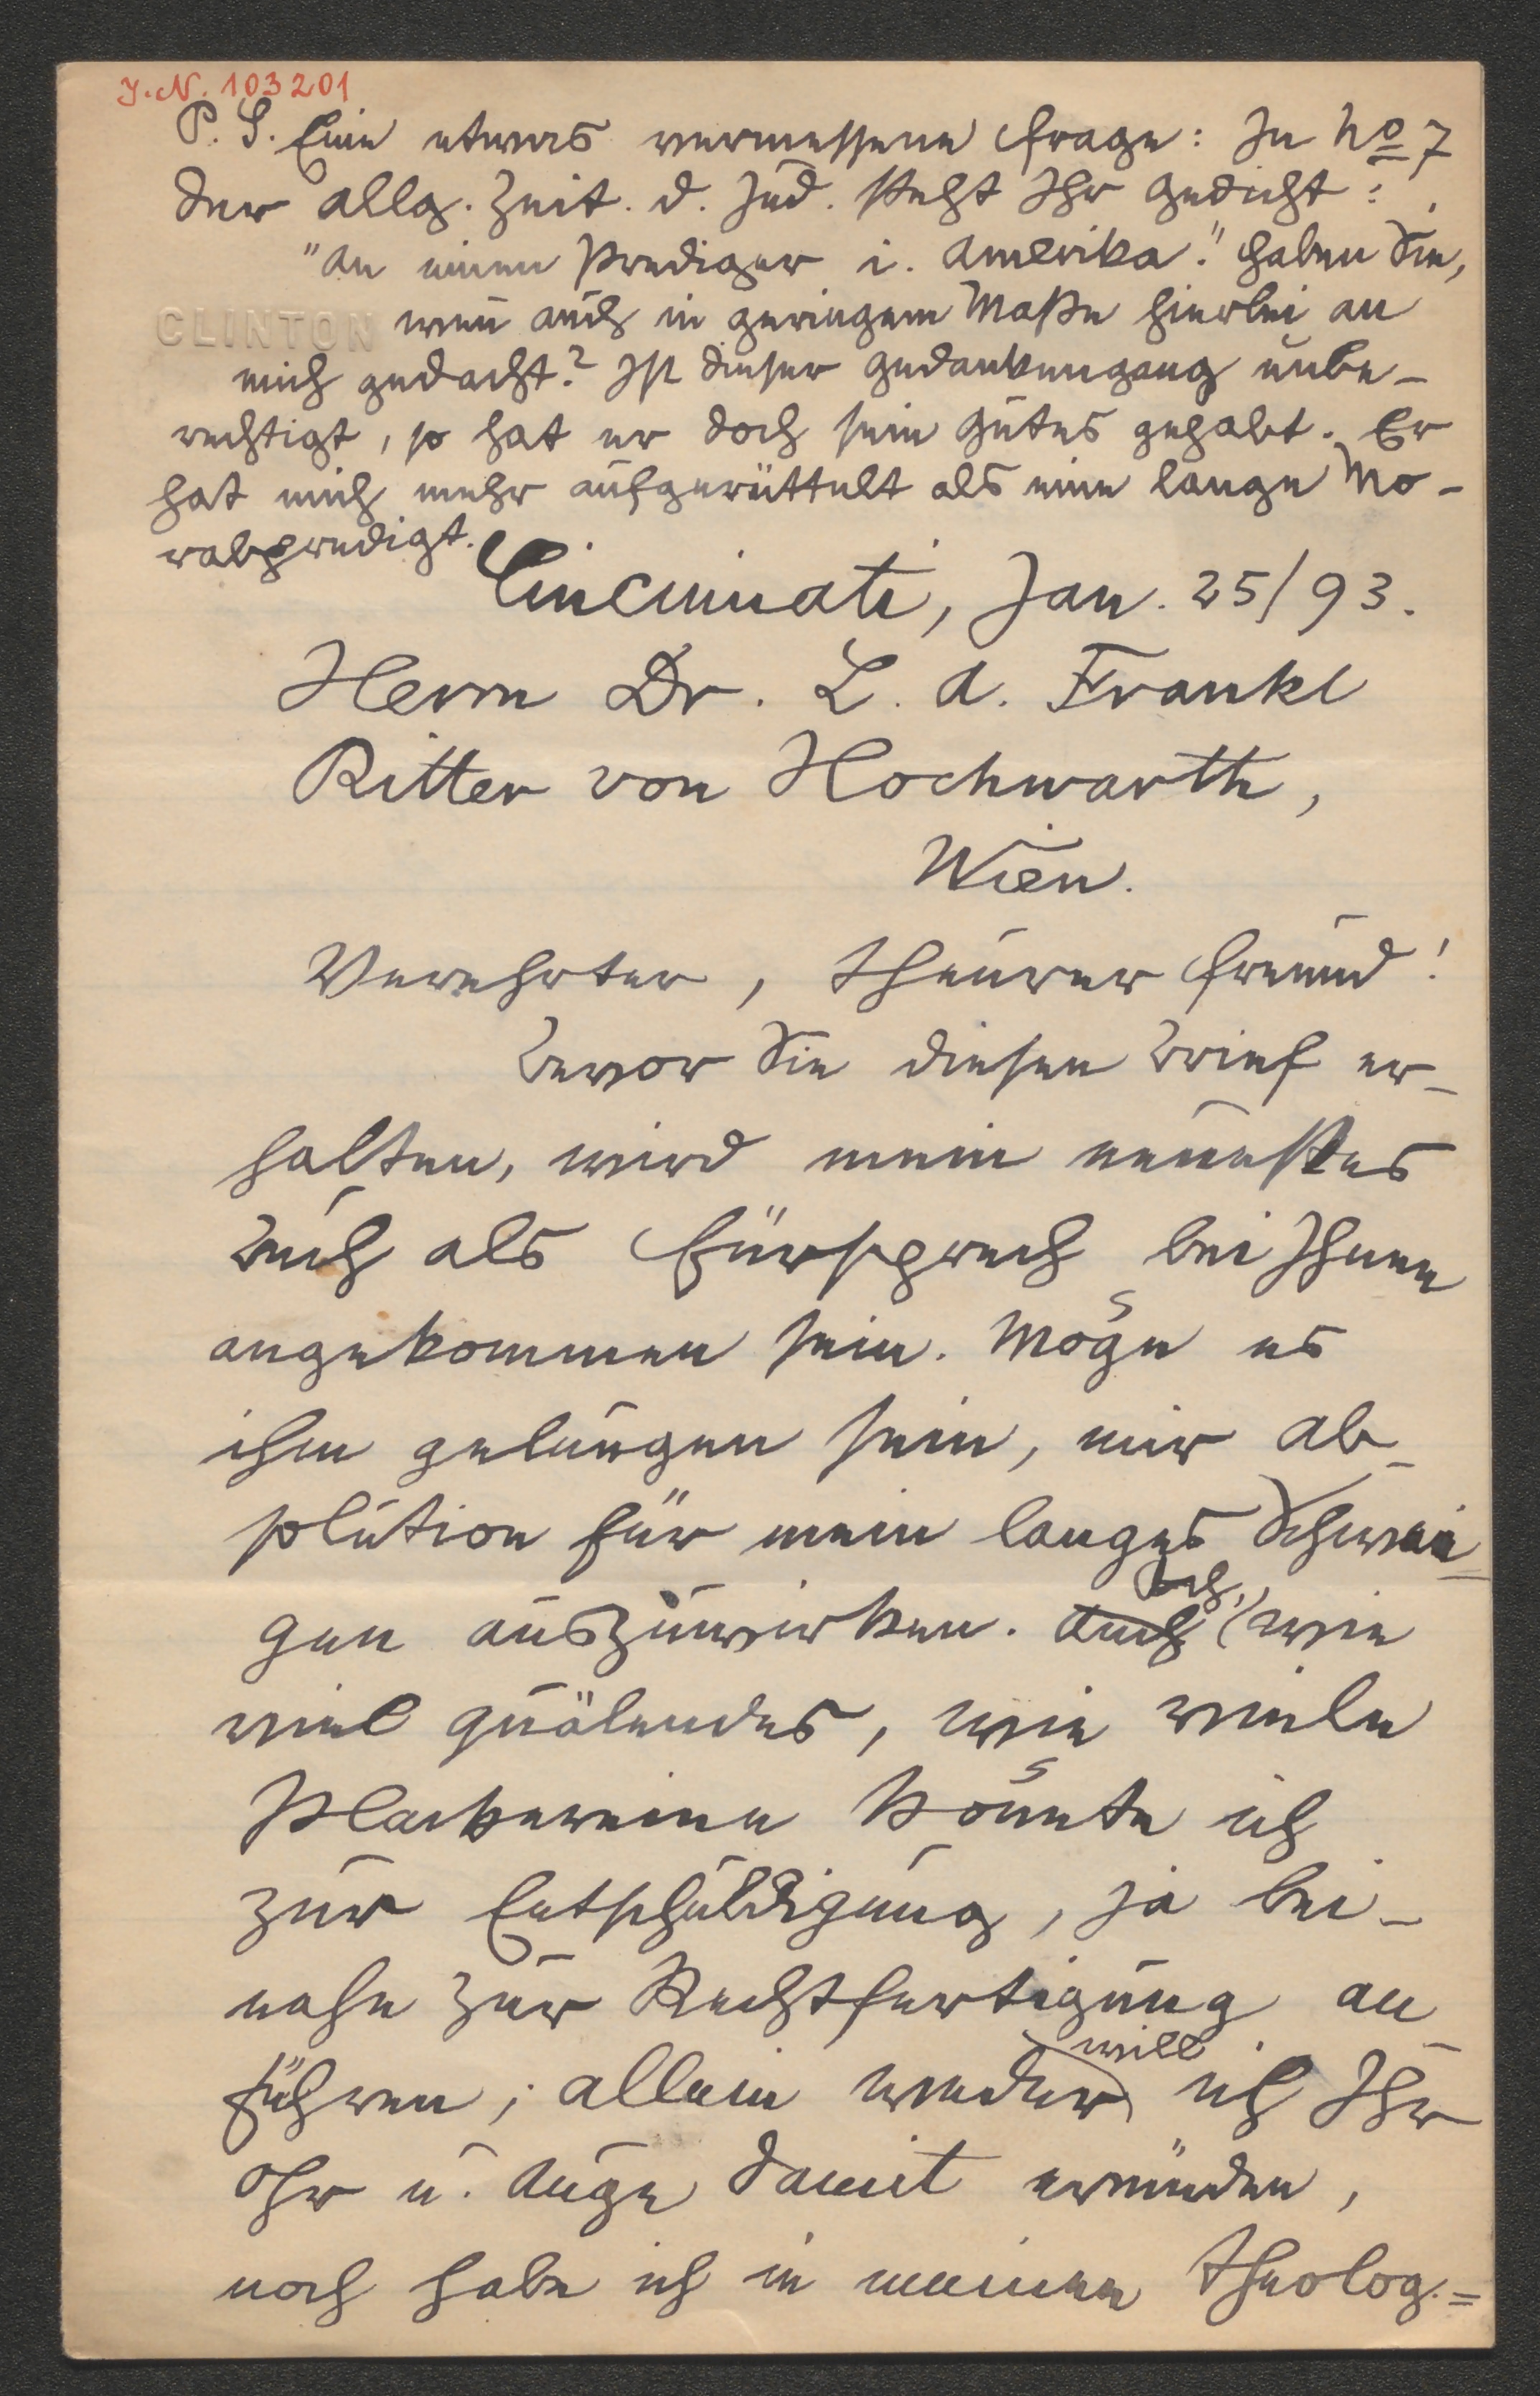 J.N. 103201
P. S. Eine etwas vermessene Frage: In No 7
der Allg. Zeit. d. Jud. steht Ihr Gedicht:
"An einen Prediger i. Amerika." Haben Sie,
CLINTON
wen̄ auch in geringem Maße hierbei an
mich gedacht? Ist dieser Gedankengang unbe-
rechtigt, so hat er doch sein Gutes gehabt. Er
hat mich mehr aufgerüttelt als eine lange Mo-
ralpredigt.
Cincinnati, Jan. 25/93.
Herrn Dr. L. A. Frankl
Ritter von Hochwarth,
Wien.
Verehrter, theurer Freund!
Bevor Sie diesen Brief er-
halten, wird mein neuestes
Buch als Fürsprech bei Ihnen
angekommen sein. Möge es
ihm gelungen sein, mir Ab-
solution für mein langes Schwei-
gen auszuwirken. Auch Ach, wie
viel quälendes, wie viele
Plackereien könnte ich
zur Entschuldigung, ja bei-
nahe zur Rechtfertigung an-
führen; allein weder will ich Ihr
Ohr u. Auge damit ermüden,
noch habe ich in meinen theolog.=